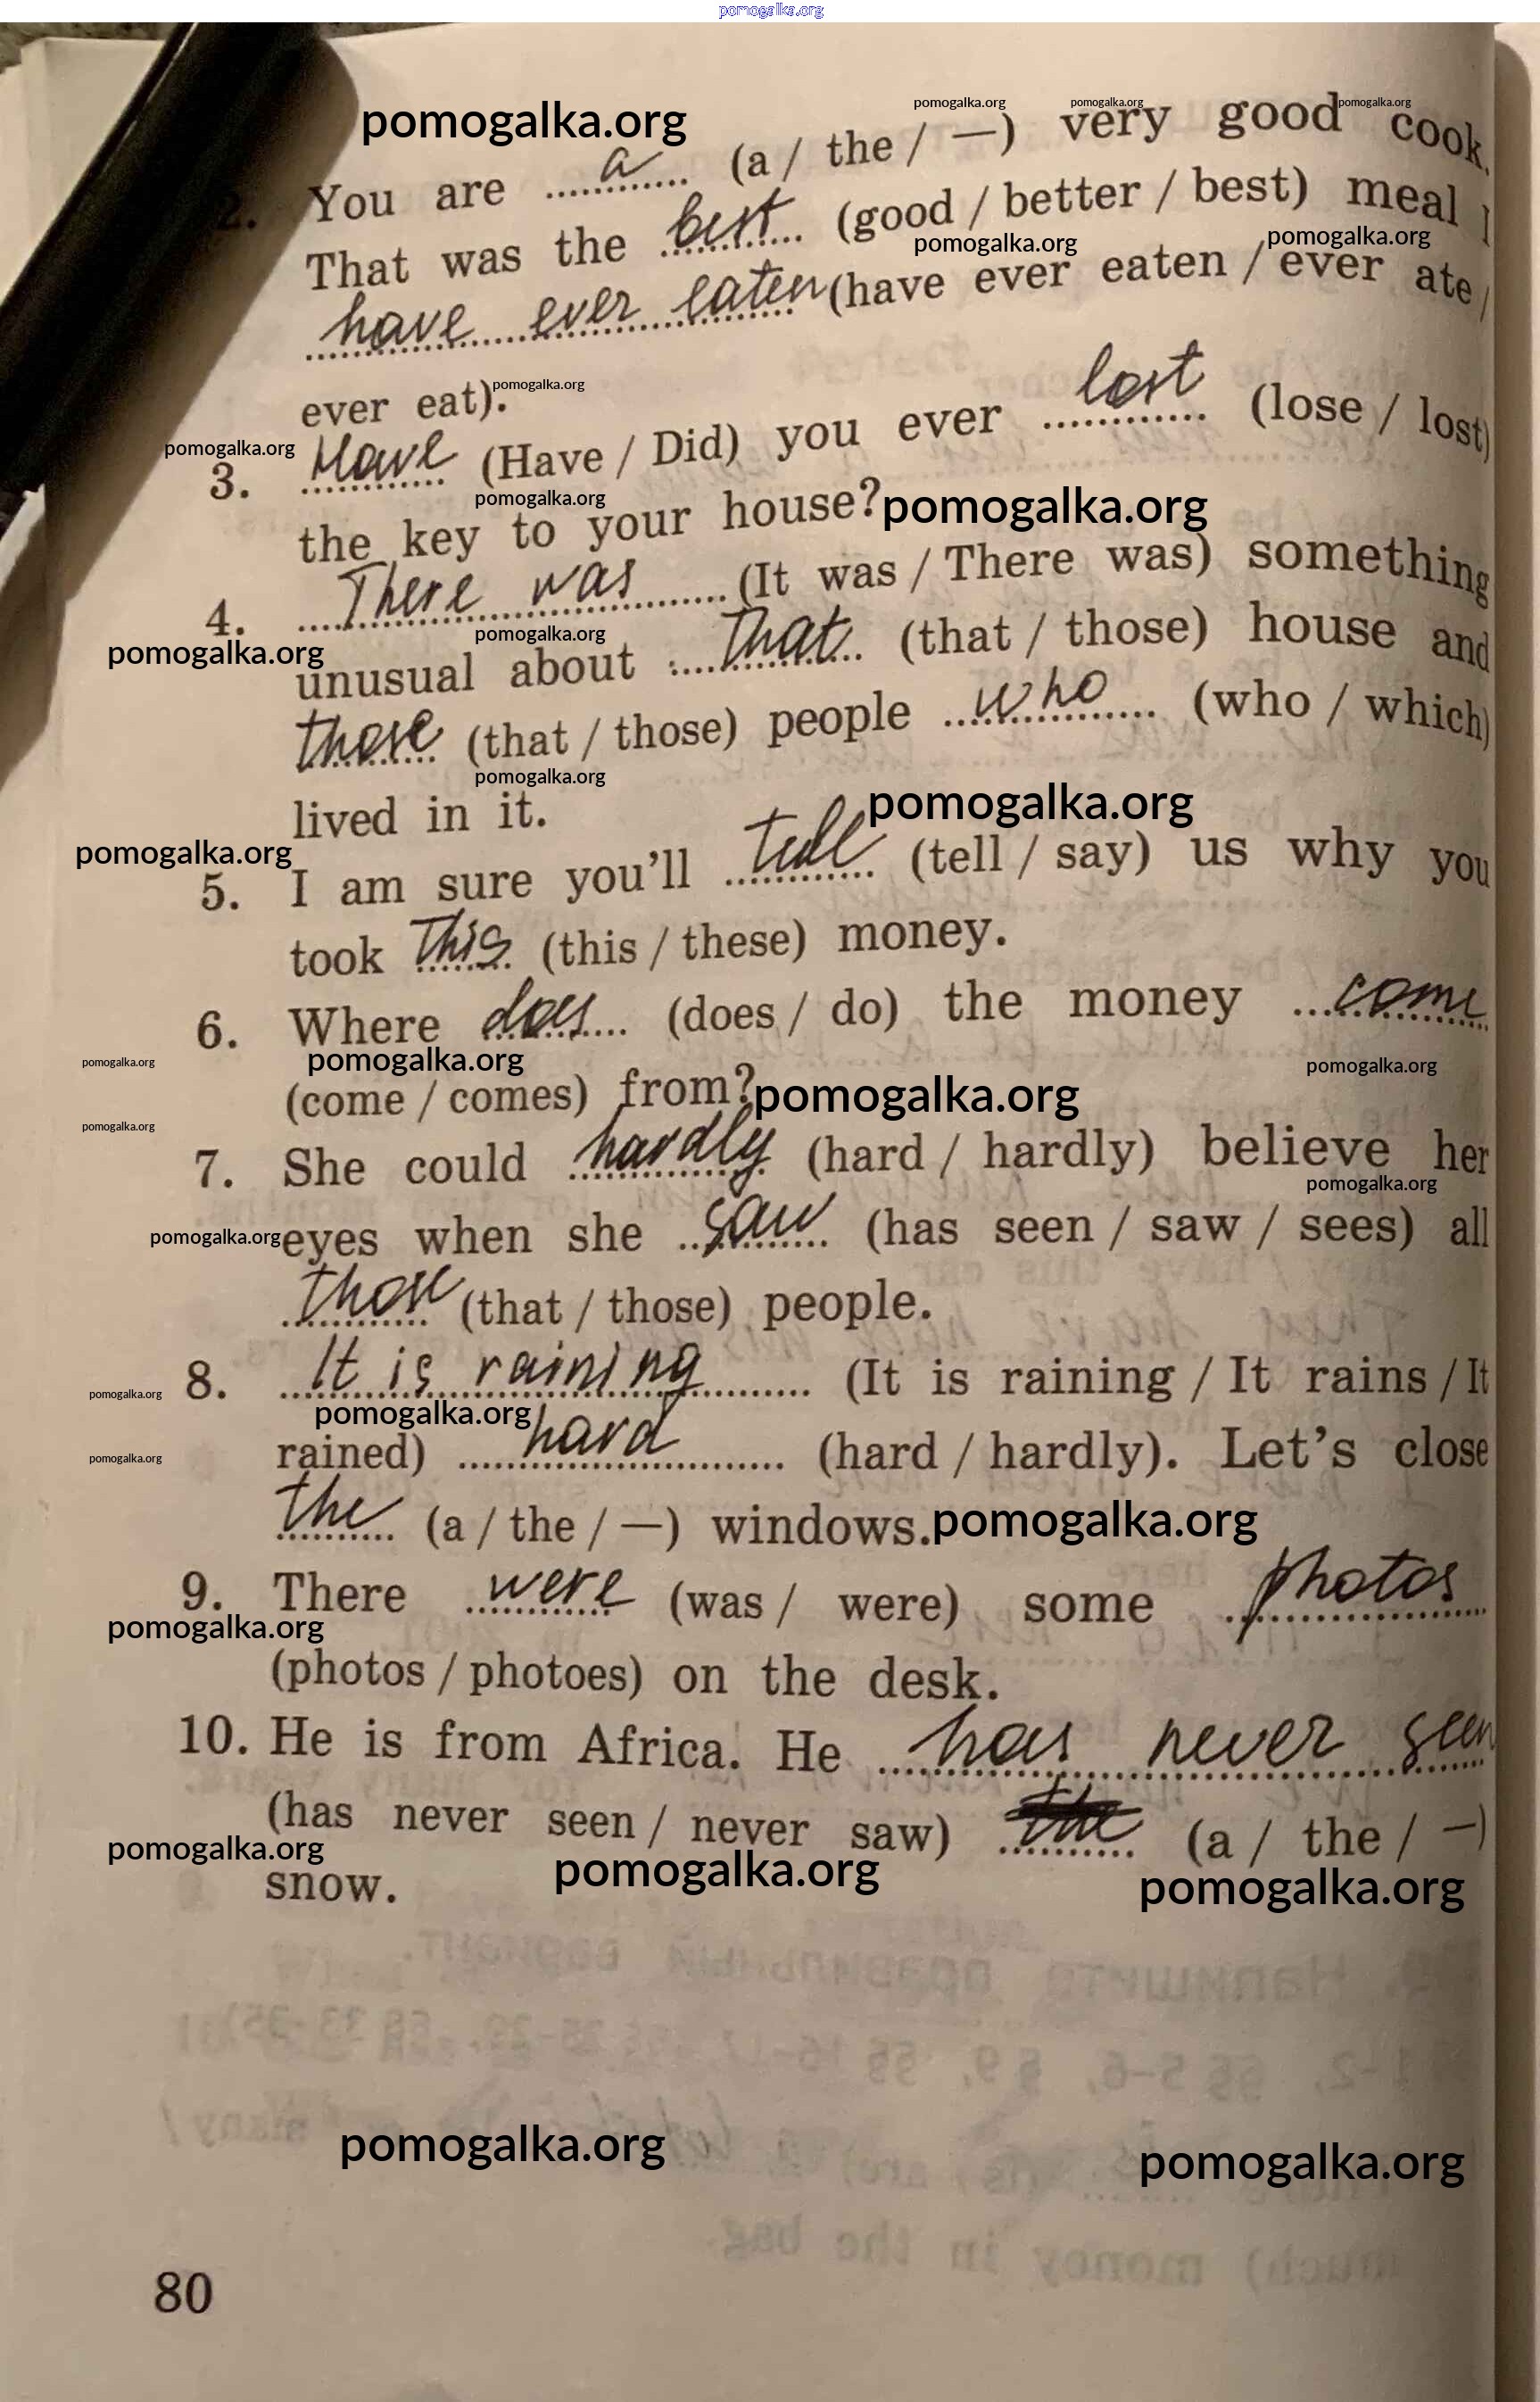 pomogalka.org
pomogalka.org pomogalka.org pomogalka.org pomogalka.org
2. You are a (a / the / —) very good cook.
That was the best (good / better / best) meal I
pomogalka.org pomogalka.org
have ever eaten (have ever eaten / ever ate /
ever eat). pomogalka.org
pomogalka.org
3. Have (Have / Did) you ever lost (lose / lost)
pomogalka.org
the key to your house? pomogalka.org
4. There was (It was / There was) something
pomogalka.org pomogalka.org
unusual about that (that / those) house and
those (that / those) people who (who / which)
pomogalka.org
lived in it. pomogalka.org
pomogalka.org
5. I am sure you'll tell (tell / say) us why you
took this (this / these) money.
6. Where does (does / do) the money come
pomogalka.org pomogalka.org pomogalka.org
(come / comes) from? pomogalka.org
pomogalka.org
7. She could hardly (hard / hardly) believe her
pomogalka.org
pomogalka.org eyes when she saw (has seen / saw / sees) all
those (that / those) people.
8. It is raining (It is raining / It rains / It
pomogalka.org pomogalka.org
rained) hard (hard / hardly). Let's close
pomogalka.org
the (a / the / —) windows. pomogalka.org
9. There were (was / were) some photos
pomogalka.org
(photos / photoes) on the desk.
10. He is from Africa. He has never seen
(has never seen / never saw) the (a / the / —)
pomogalka.org pomogalka.org pomogalka.org
snow.
pomogalka.org pomogalka.org
80